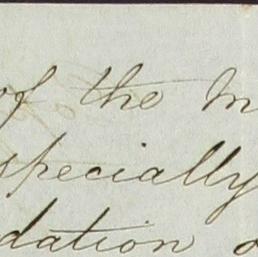 of the m
specially
dation